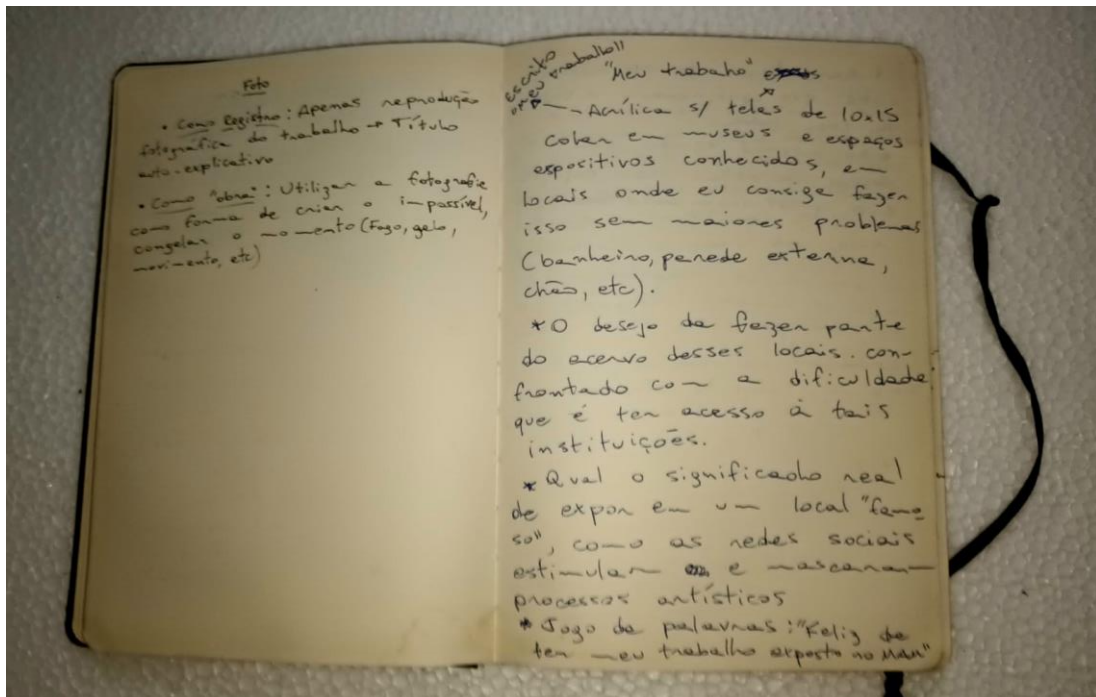 Foto
• Como Registro: Apenas reprodução
fotográfica do trabalho → Título
auto-explicativo
• Como "obra": Utilizar a fotografia
como forma de criar o impossível,
congelar o momento (Fogo, gelo,
movimento, etc)
escrito
"meu trabalho"
"Meu trabaho"
— Acrílica s/ telas de 10x15
colar em museus e espaços
expositivos conhecidos, em
locais onde eu consiga fazer
isso sem maiores problemas
(banheiro, parede externa,
chão, etc).
* O desejo de fazer parte
do acervo desses locais. con-
frontado com a dificuldade
que é ter acesso à tais
instituições.
* Qual o significado real
de expor em um local "famo
so", como as redes sociais
estimulam e mascaram
processos artísticos
* Jogo de palavras: "Feliz de
ter meu trabalho exposto no MAM"